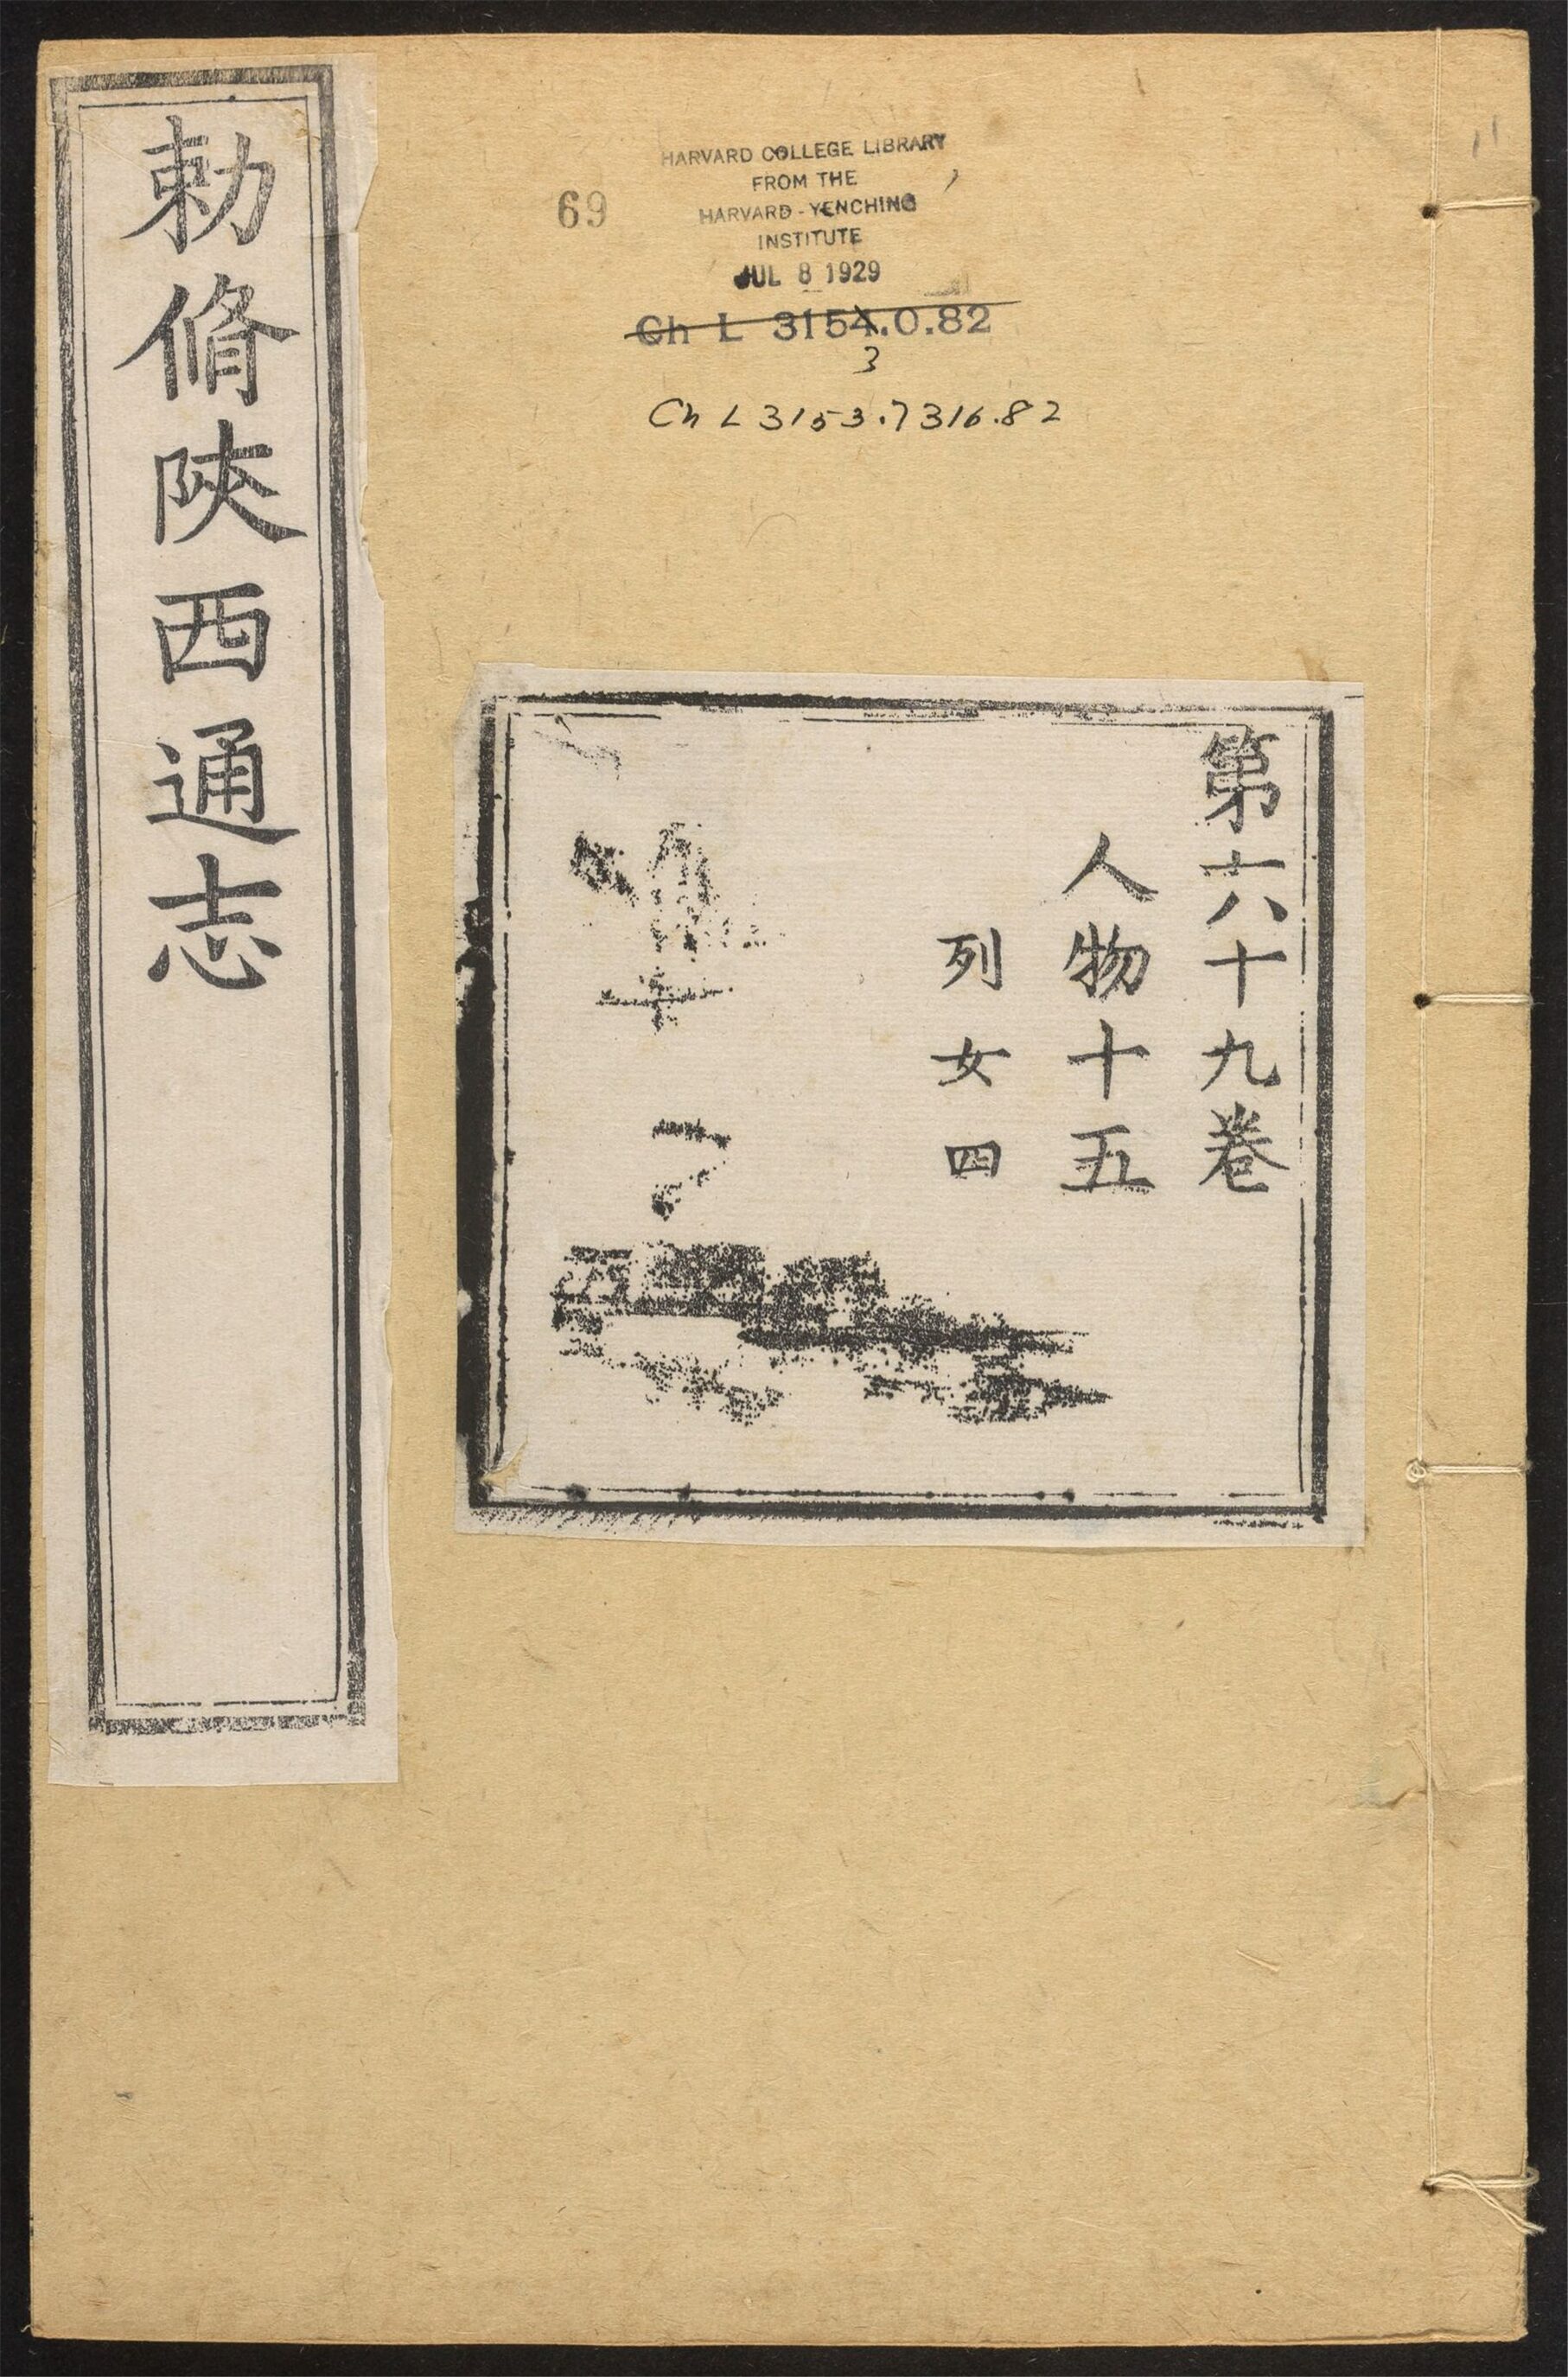 勅脩陝西通志
69
HARVARD COLLEGE LIBRARY
FROM THE
HARVARD-YENCHING
INSTITUTE
JUL 8 1929
Ch L 3154.0.82
3
Ch L 3153.7316.82
第六十九卷
人物十五
列女四